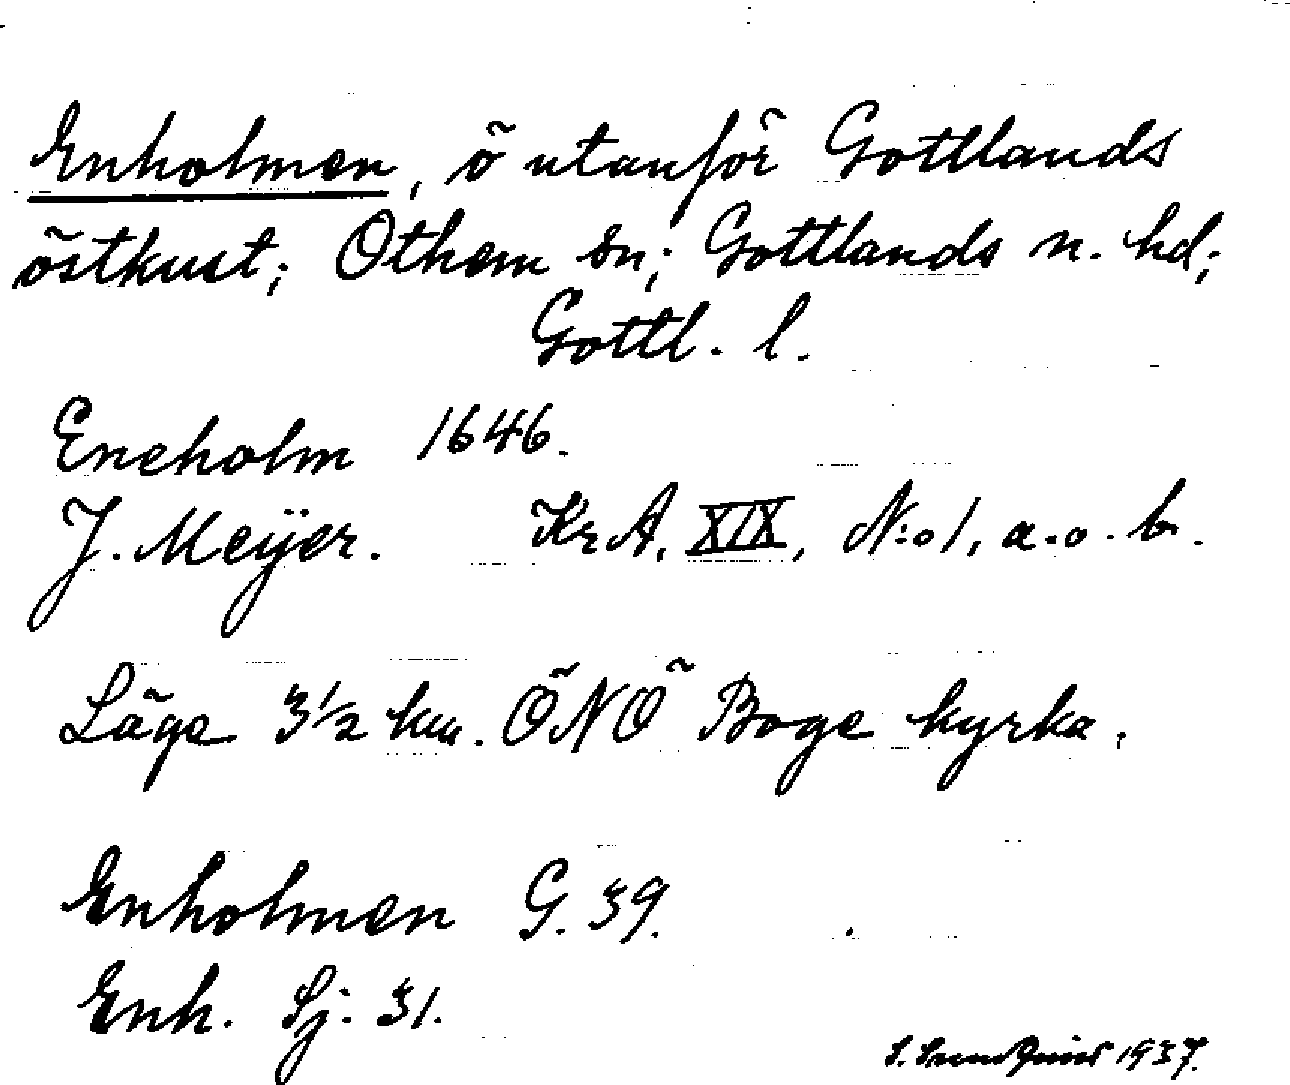 Enholmen, ö utanför Gottlands
östkust; Othem sn; Gottlands n. hd;
Gottl. l.
Eneholm 1646.
J. Meÿer. KrA, XIX, N:o 1, a.o.b.
Läge 3 1/2 km. ÖNÖ Boge kyrka.
Enholmen G. 39.
Enh. Sj: 31.
S. 1937.